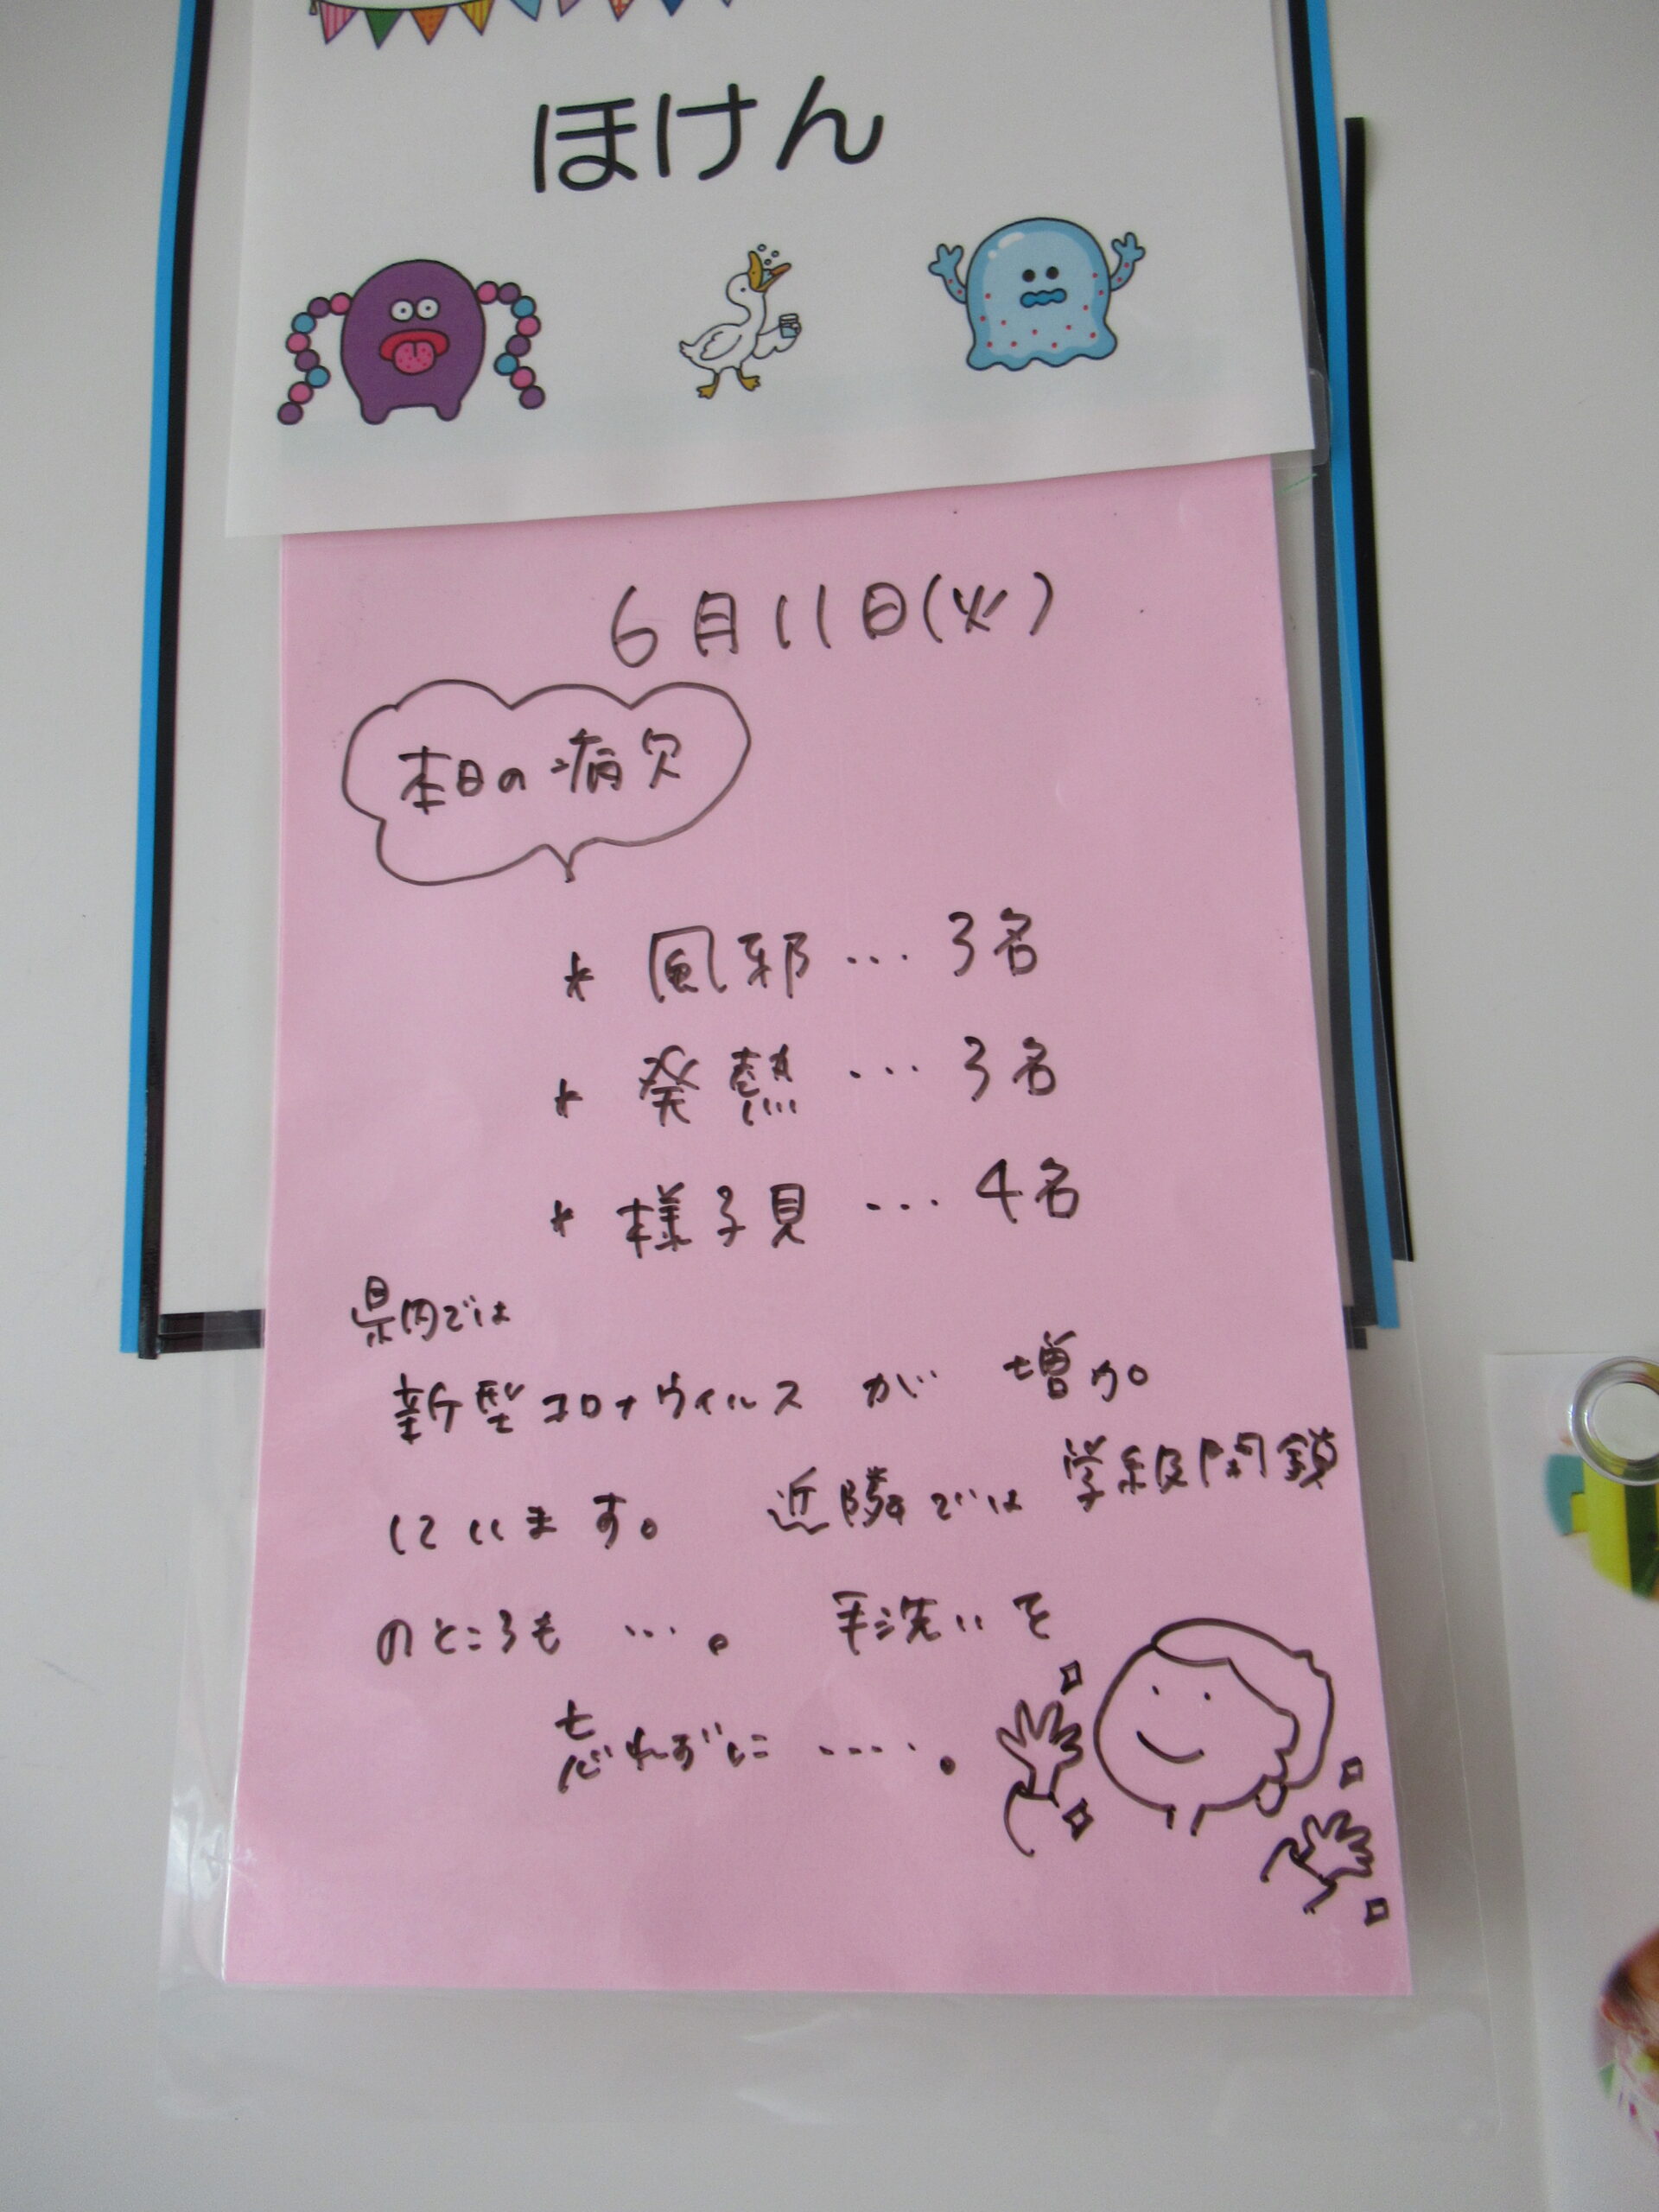 ほけん
6月11日(火)
本日の病欠
* 風邪…3名
* 発熱…3名
* 様子見…4名
県内では
新型コロナウィルスが増加。
しています。近隣では学級閉鎖
のところも…。手洗いを
忘れずに・・・・・。